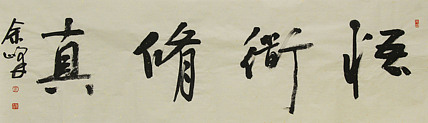 悟衜脩真
余峰